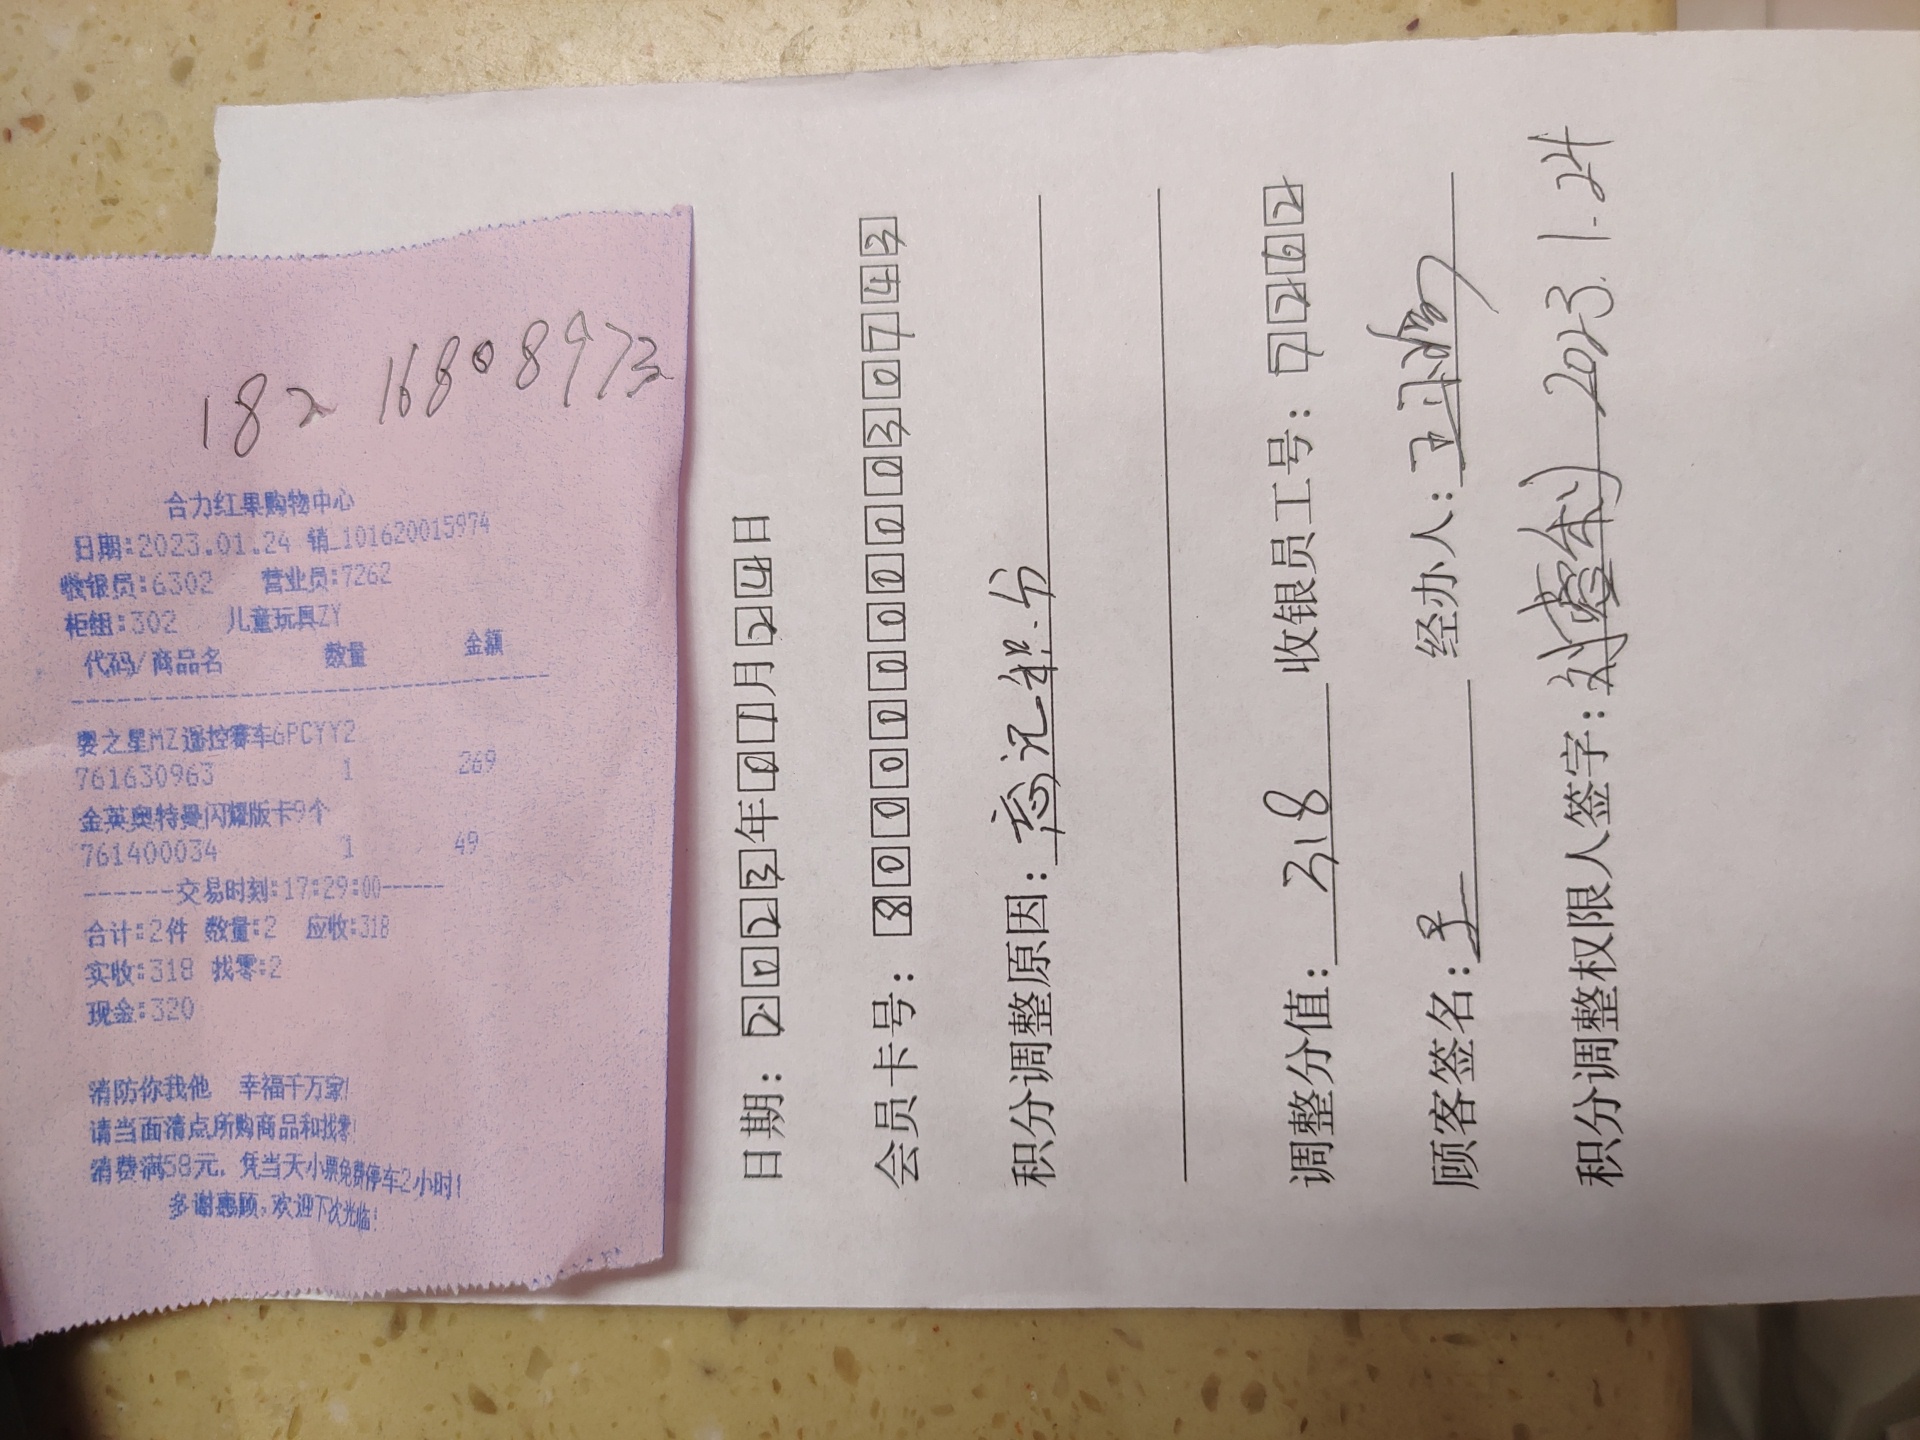 182 16808973
合力红果购物中心
日期:2023.01.24 销_101620015974
收银员:6302 营业员:7262
柜组:302 儿童玩具ZY
代码/商品名 数量 金额
婴之星MZ遥控赛车6PCYY2
761630963 1 269
金英奥特曼闪耀版卡9个
761400034 1 49
------交易时刻:17:29:00------
合计:2件 数量:2 应收:318
实收:318 找零:2
现金:320
消防你我他 幸福千万家!
请当面清点所购商品和找零!
消费满58元，凭当天小票免费停车2小时!
多谢惠顾,欢迎下次光临!
日期：2023年01月24日
会员卡号：800000000030743
积分调整原因：忘记积分
调整分值：318 收银员工号：7262
顾客签名： 经办人：
积分调整权限人签字： 2023.1.24